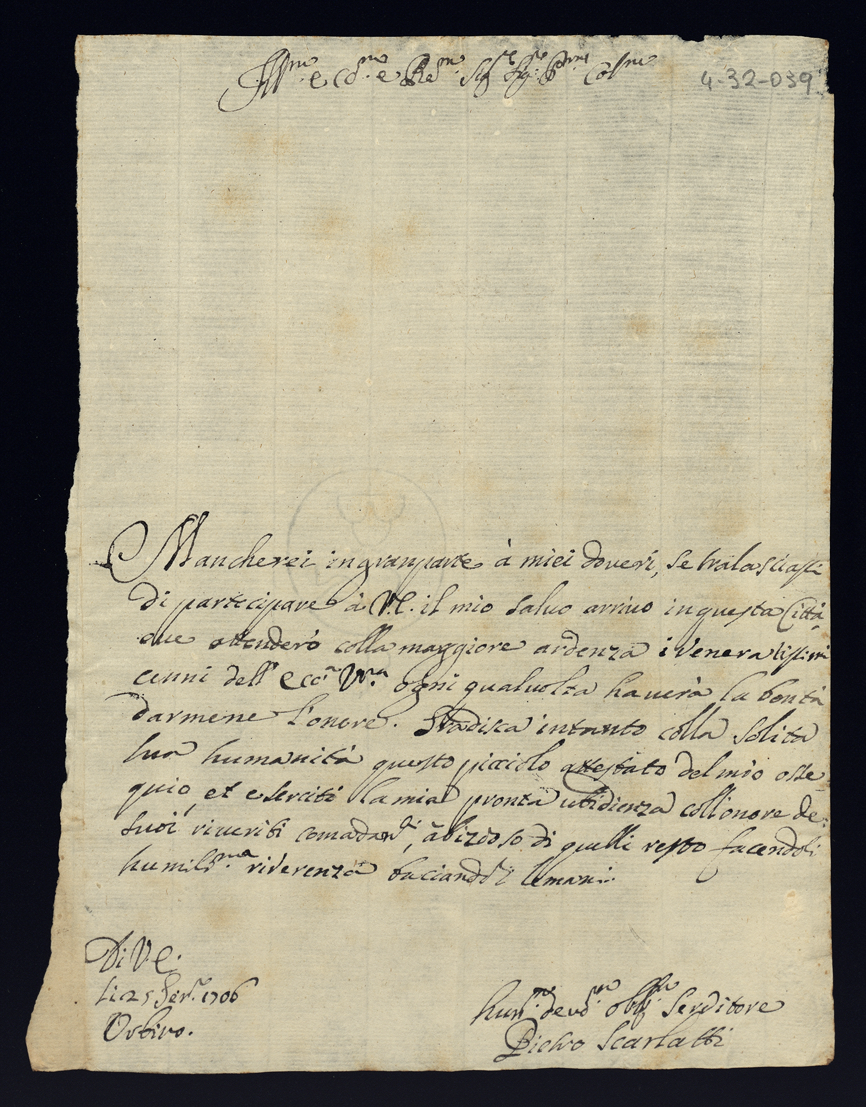 Ill.mo e Ecc.mo e Re.mo Sig.re Sig.re P.rone Col.mo
4-32-039
Mancherei in gran parte à miei doveri, se tralasciassi
di partecipare à V.E. il mio salvo arrivo in questa Città
ove attenderò colla maggiore ardenza i veneratissimi
cenni dell' Ecc.a V.ra ogni qualvolta haverà la bontà
darmene l'onore. Gradisca intanto colla solita
sua humanità questo picciolo attestato del mio osse-
quio, et eserciti la mia pronta ubidienza coll'onore de
suoi riveriti comadi, di quelli resto facendoli
humiliss.ma riverenza baciandoli le mani.
Di V.E.
li 25 1706
Orbino.
hum.mo dev.mo obl.mo Servitore
Pietro Scarlatti